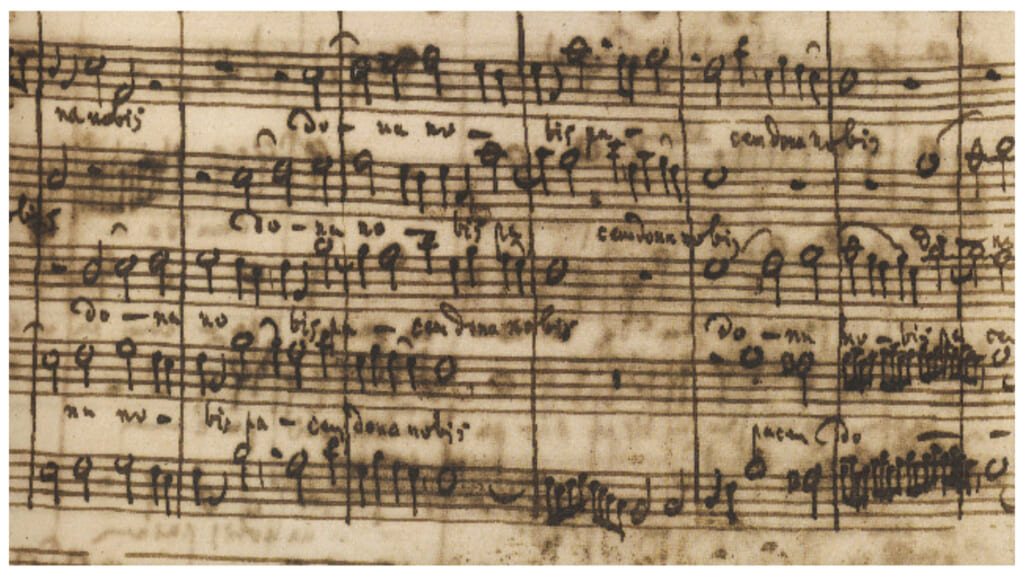 na nobis
Do - na no - bis pa - cem dona nobis
nobis
Do - na no - bis pa cem dona nobis Do - na
Do - na no bis pa - cem dona nobis Do - na no - bis pa ce
na no - bis pa - cem dona nobis pacem Do - -